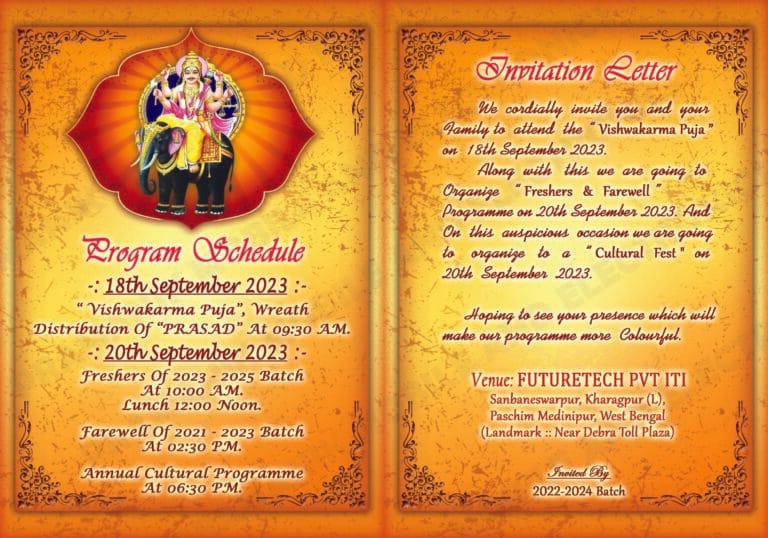 Program Schedule
-: 18th September 2023 :-
“ Vishwakarma Puja”, Wreath
Distribution Of “PRASAD” At 09:30 AM.
-: 20th September 2023 :-
Freshers Of 2023 - 2025 Batch
At 10:00 AM.
Lunch 12:00 Noon.
Farewell Of 2021 - 2023 Batch
At 02:30 PM.
Annual Cultural Programme
At 06:30 PM.
Invitation Letter
We cordially invite you and your
Family to attend the “ Vishwakarma Puja ”
on 18th September 2023.
Along with this we are going to
Organize “ Freshers & Farewell ”
Programme on 20th September 2023. And
On this auspicious occasion we are going
to organize to a “ Cultural Fest " on
20th September 2023.
Hoping to see your presence which will
make our programme more Colourful.
Venue: FUTURETECH PVT ITI
Sanbaneswarpur, Kharagpur (L),
Paschim Medinipur, West Bengal
(Landmark :: Near Debra Toll Plaza)
Invited By
2022-2024 Batch